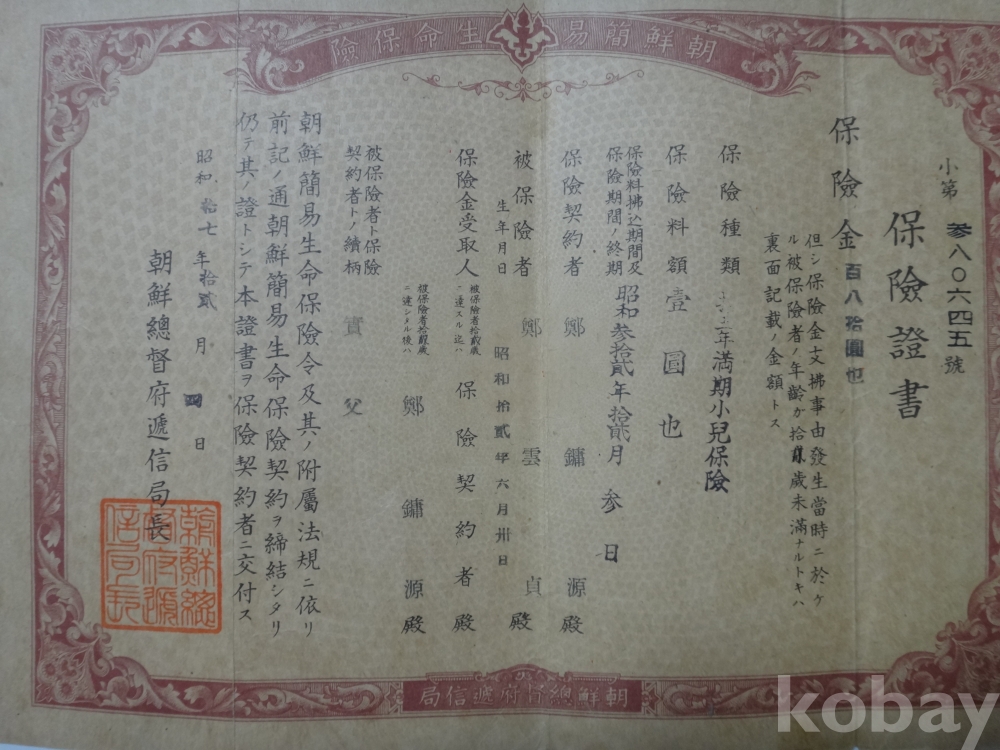 朝鮮簡易生命保險
小第參八〇六四五號
保險證書
保險金百八拾圓也
但シ保險金支拂事由發生當時ニ於ケ
ル被保險者ノ年齡ガ拾貳歲未滿ナルトキハ
裏面記載ノ金額トス
保險種類 年滿期小兒保險
保險料額 壹圓也
保險料拂込期間及
保險期間ノ終期 昭和參拾貳年拾貳月參日
保險契約者 鄭鏞源殿
被保險者 鄭雲貞殿
生年月日 昭和拾貳年六月卅日
保險金受取人
被保險者拾貳歲
ニ達スル迄ハ 保險契約者殿
被保險者拾貳歲
ニ達シタル後ハ 鄭鏞源殿
被保險者ト保險
契約者トノ續柄 實父
朝鮮簡易生命保險令及其ノ附屬法規ニ依リ
前記ノ通朝鮮簡易生命保險契約ヲ締結シタリ
仍テ其ノ證トシテ本證書ヲ保險契約者ニ交付ス
昭和拾七年拾貳月四日
朝鮮總督府遞信局長
朝鮮總
督府遞
信局長
朝鮮總督府遞信局
kobay